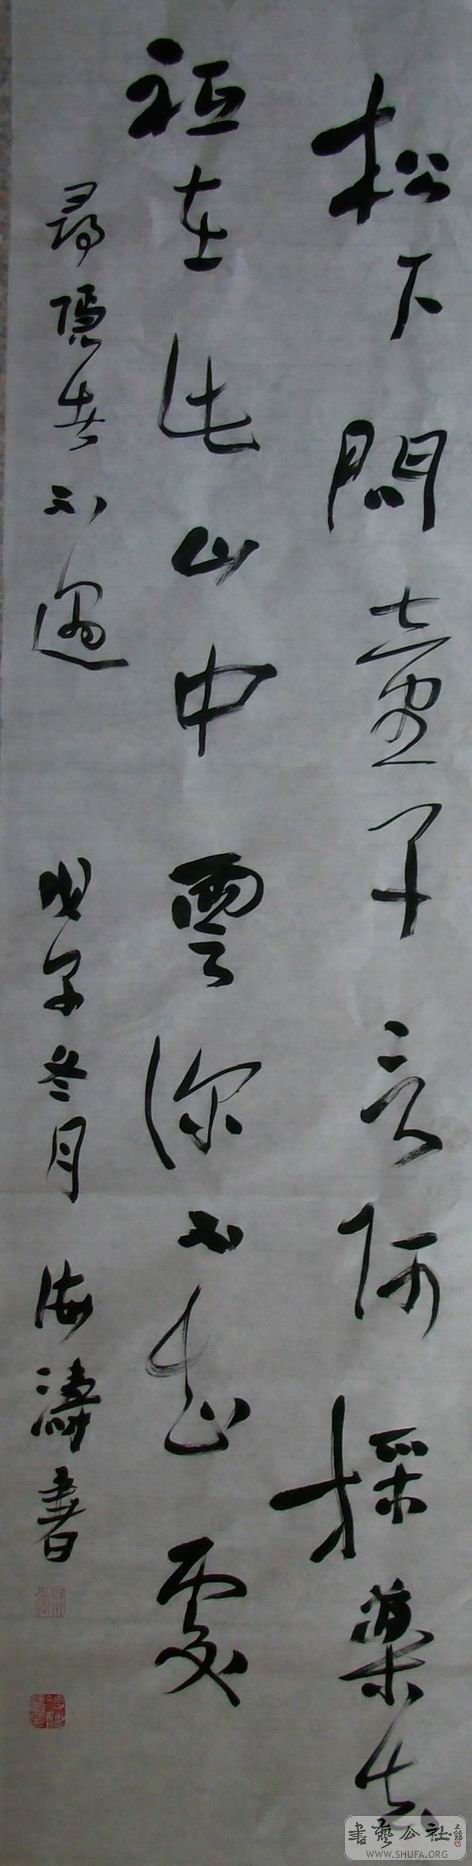 松下問童子言師採藥去
祇在此山中雲深不知處
尋隱者不遇 戊子冬月 海濤書
書藝公社
WWW.SHUFA.ORG